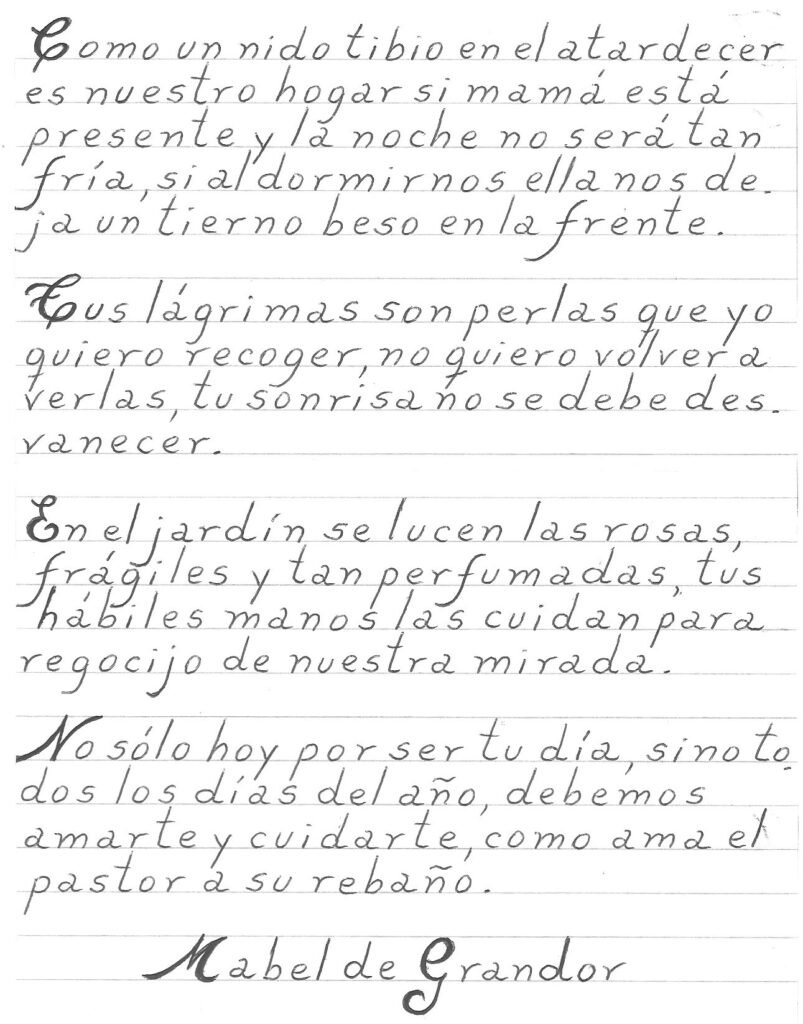 Como un nido tibio en el atardecer
es nuestro hogar si mamá está
presente y la noche no será tan
fría, si al dormirnos ella nos de-
ja un tierno beso en la frente.
Tus lágrimas son perlas que yo
quiero recoger, no quiero volver a
verlas, tu sonrisa no se debe des-
vanecer.
En el jardín se lucen las rosas,
frágiles y tan perfumadas, tus
hábiles manos las cuidan para
regocijo de nuestra mirada.
No sólo hoy por ser tu día, sino to-
dos los días del año, debemos
amarte y cuidarte, como ama el
pastor a su rebaño.
Mabel de Grandor